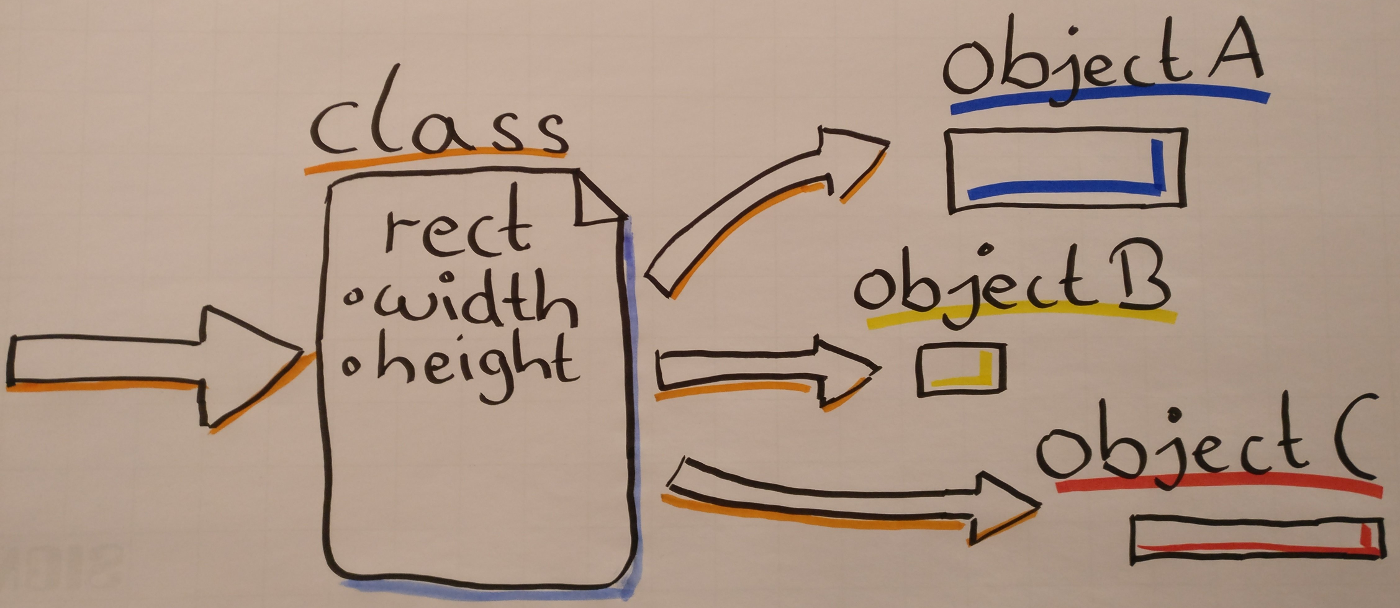 class
rect
• width
• height
object A
object B
object C